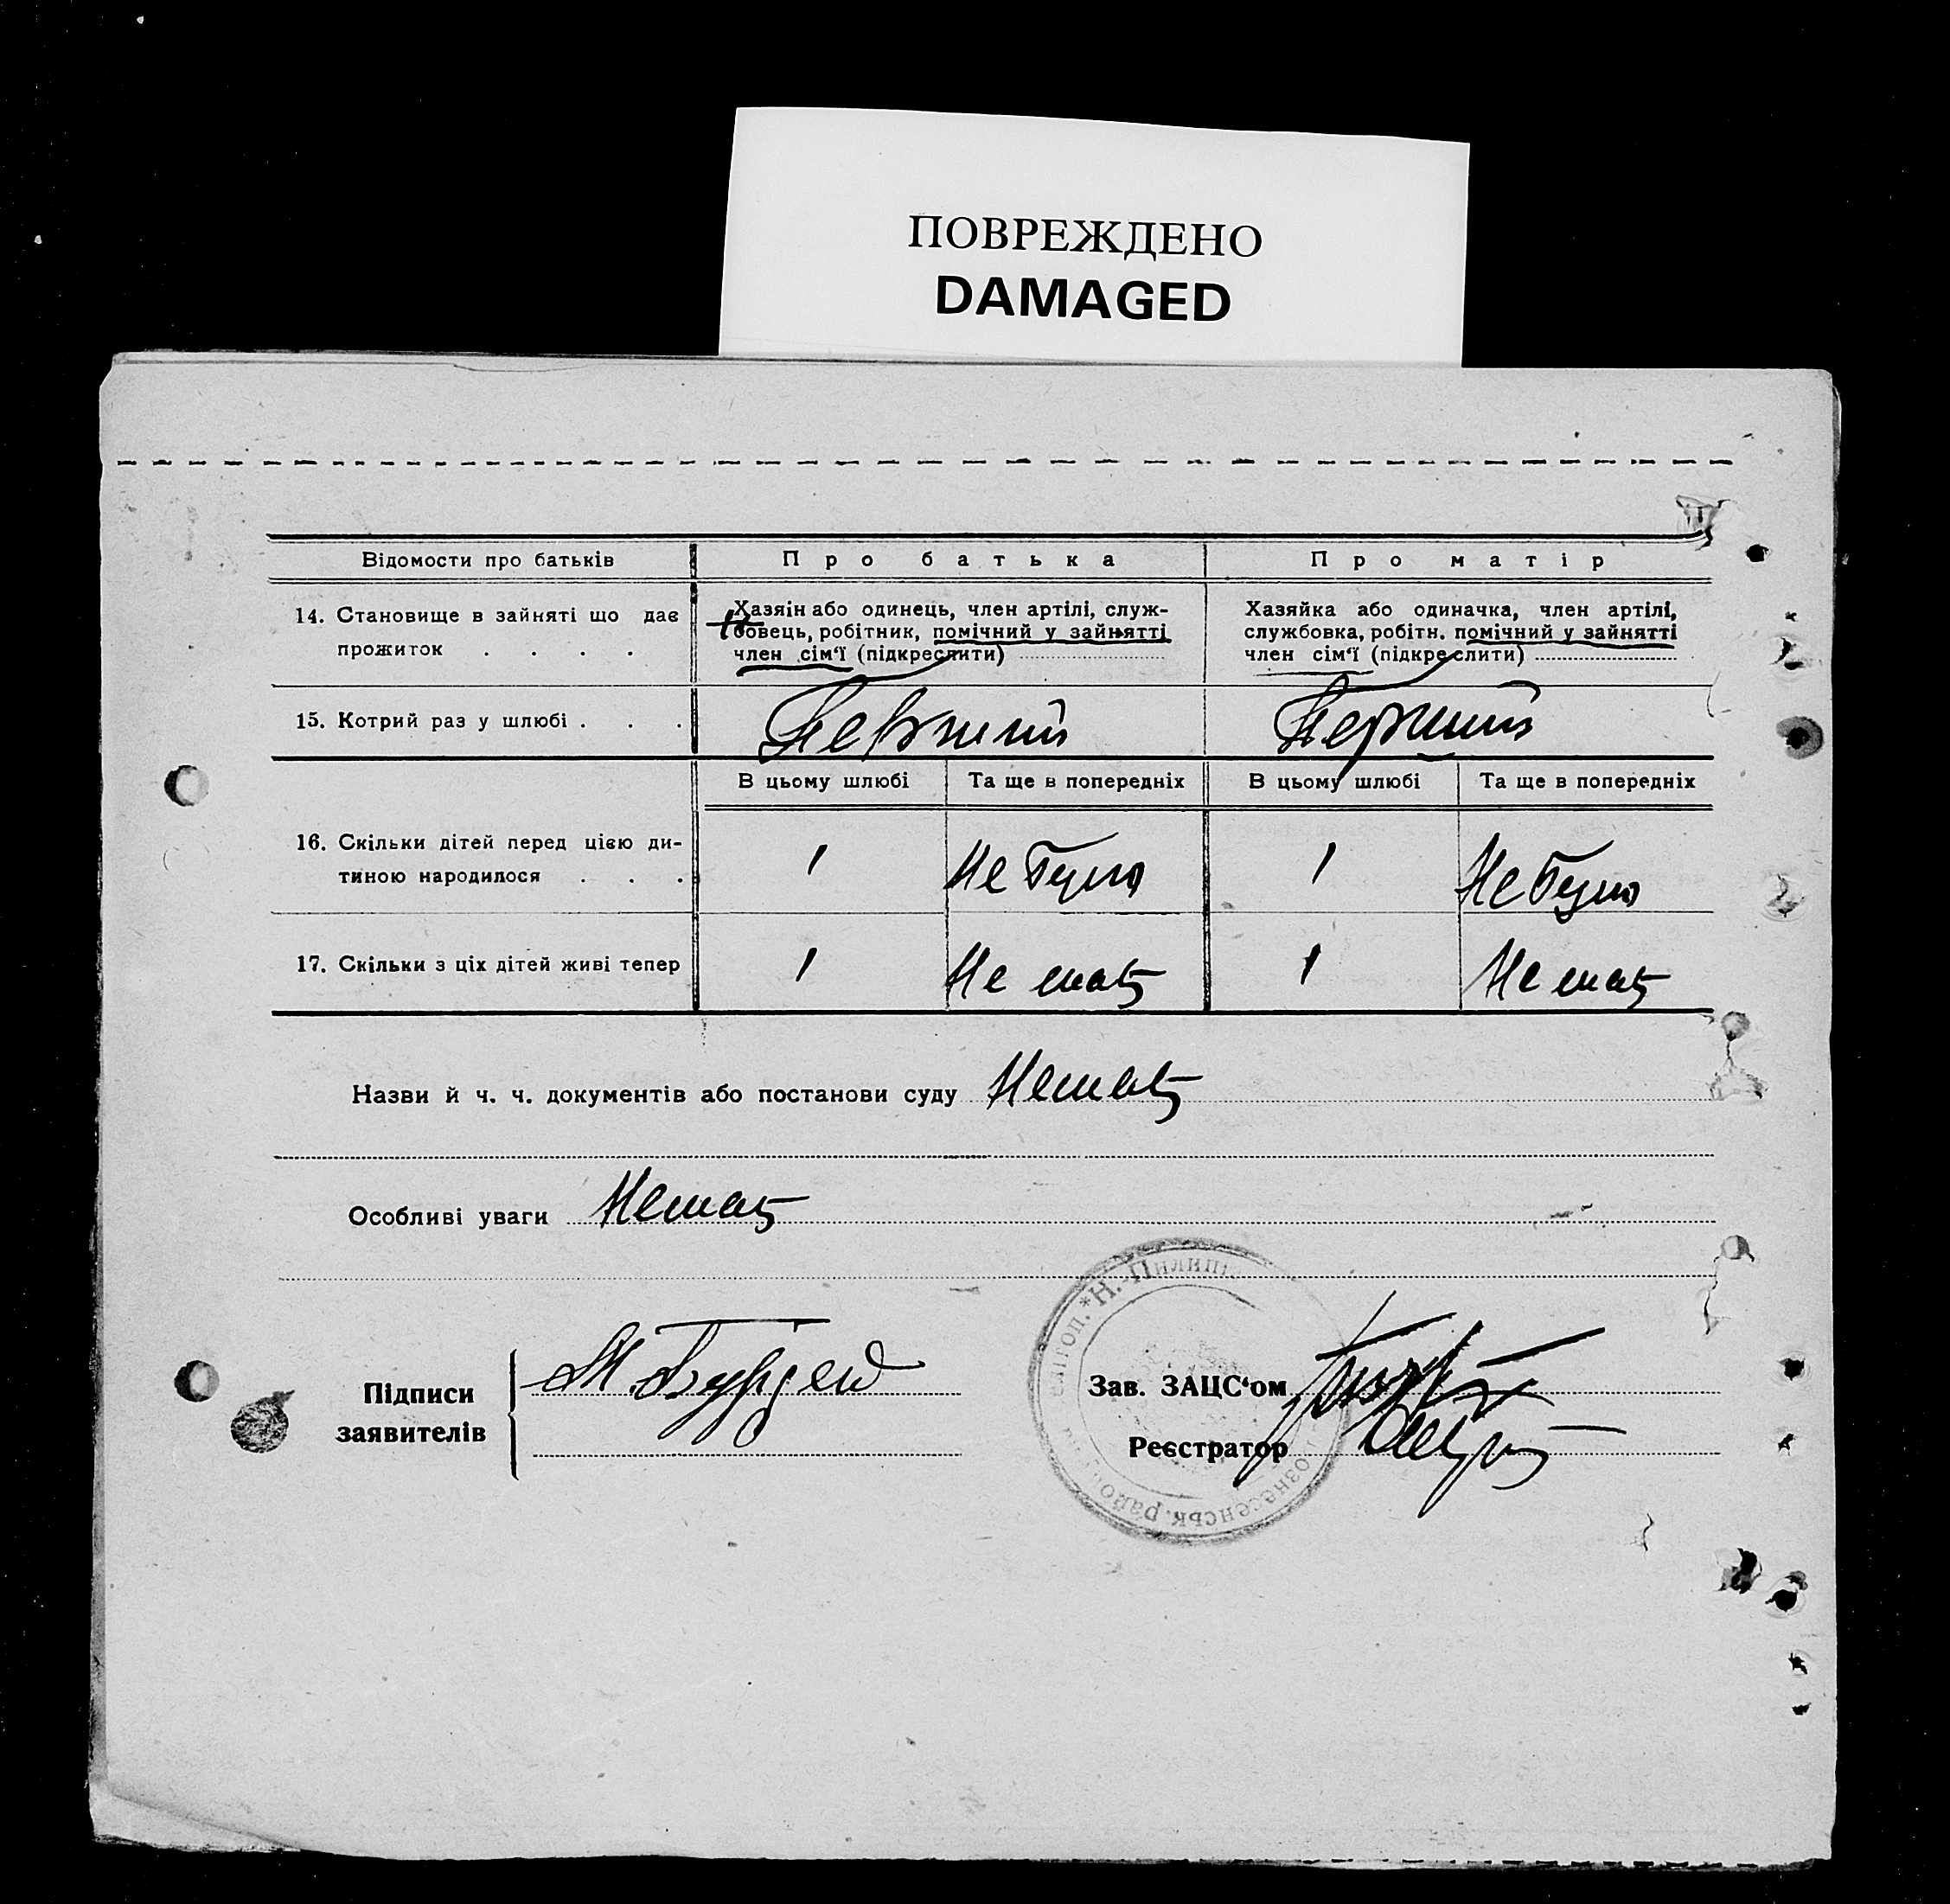 ПОВРЕЖДЕНО
DAMAGED
Відомости про батьків
Про батька
Про матір
14. Становище в зайняті що дає
прожиток . . . .
Хазяін або одинець, член артілі, служ-
бовець, робітник, помічний у зайнятті
член сім‘ї (підкреслити)
Хазяйка або одиначка, член артілі,
службовка, робітн. помічний у зайнятті
член сім‘ї (підкреслити)
15. Котрий раз у шлюбі . . .
Первший
Перший
В цьому шлюбі
Та ще в попередніх
В цьому шлюбі
Та ще в попередніх
16. Скільки дітей перед цією ди-
тиною народилося . . .
1
Не було
1
Не було
17. Скільки з ціх дітей живі тепер
1
Не має
1
Не має
Назви й ч. ч. документів або постанови суду Немає
Особливі уваги Немає
Підписи
заявителів
Зав. ЗАЦС‘ом
Реєстратор
*Н.-Пилипі
ознесенськ. райо